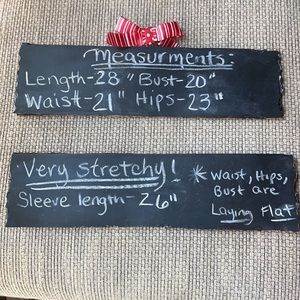 Measurments:
Length-28" Bust-20"
Waist-21" Hips-23"
Very Stretchy!
Sleeve length-26"
* Waist, Hips,
Bust are
Laying Flat